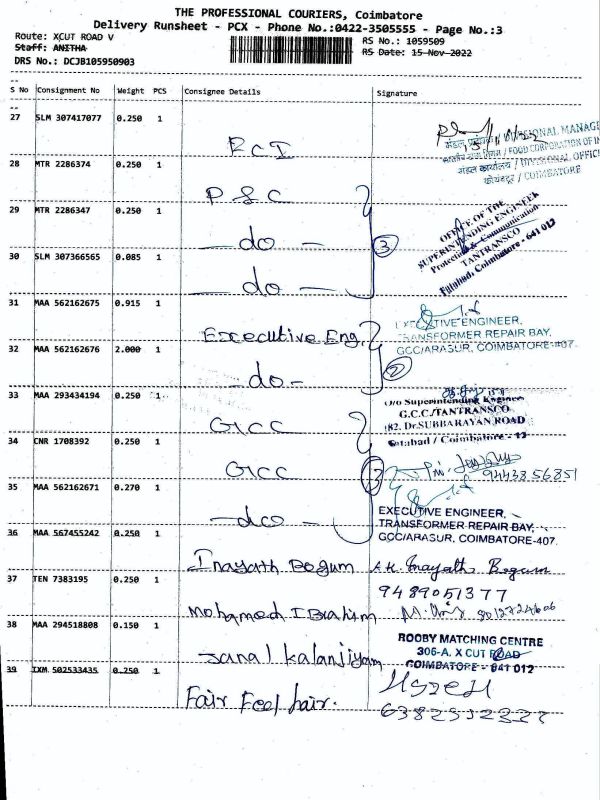 THE PROFESSIONAL COURIERS, Coimbatore
Delivery Runsheet - PCX - Phone No.:0422-3505555 - Page No.:3
Route: XCUT ROAD V
RS No.: 1059509
Staff: ANITHA
RS Date: 15 Nov 2022
DRS No.: DCJB105950903
S No Consignment No Weight PCS Consignee Details Signature
27 SLM 307417077 0.250 1
FCI
DIVISIONAL MANAGE
भारतीय खाद्य निगम / FOOD CORPORATION OF IN
मंडल कार्यालय / DIVISIONAL OFFIC
कोयंबटूर / COIMBATORE
28 MTR 2286374 0.250 1
PSC
29 MTR 2286347 0.250 1
- do -
3
OFFICE OF THE
SUPERINTENDING ENGINEER
Protection & Communication
TANTRANSCO
Tatabad, Coimbatore - 641 012
30 SLM 307366565 0.085 1
- do -
31 MAA 562162675 0.915 1
Executive Eng.
EXECUTIVE ENGINEER,
TRANSFORMER REPAIR BAY,
GCC/ARASUR, COIMBATORE-407.
32 MAA 562162676 2.000 1
- do -
2
33 MAA 293434194 0.250 1
GCC
O/o Superintending Engineer
G.C.C./TANTRANSCO
182, Dr.SUBBARAYAN ROAD
Tatabad / Coimbatore - 12
34 CNR 1708392 0.250 1
GCC
3
94438 56851
35 MAA 562162671 0.270 1
- do -
EXECUTIVE ENGINEER,
TRANSFORMER REPAIR BAY,
GCC/ARASUR, COIMBATORE-407.
36 MAA 567455242 0.250 1
Inayath Begum A.K. Inayath Begum
9489051377
37 TEN 7383195 0.250 1
Mohamed IBrahim 8012724606
38 MAA 294518808 0.150 1
Janal Kalanjiyam
ROOBY MATCHING CENTRE
306-A, X CUT ROAD
COIMBATORE - 641 012
39 IXM 502533435 0.250 1
Fair Feel hair.